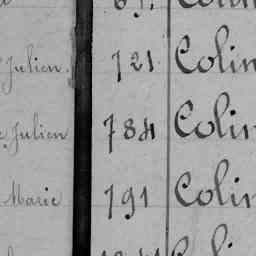 Julien. 721 Colin
Julien 784 Colin
Marie 791 Colin